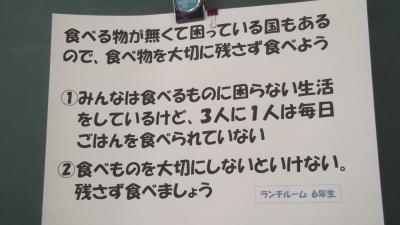 食べる物が無くて困っている国もある
ので、食べ物を大切に残さず食べよう
①みんなは食べるものに困らない生活
をしているけど、3人に1人は毎日
ごはんを食べられていない
②食べものを大切にしないといけない。
残さず食べましょう
ランチルーム 6年生